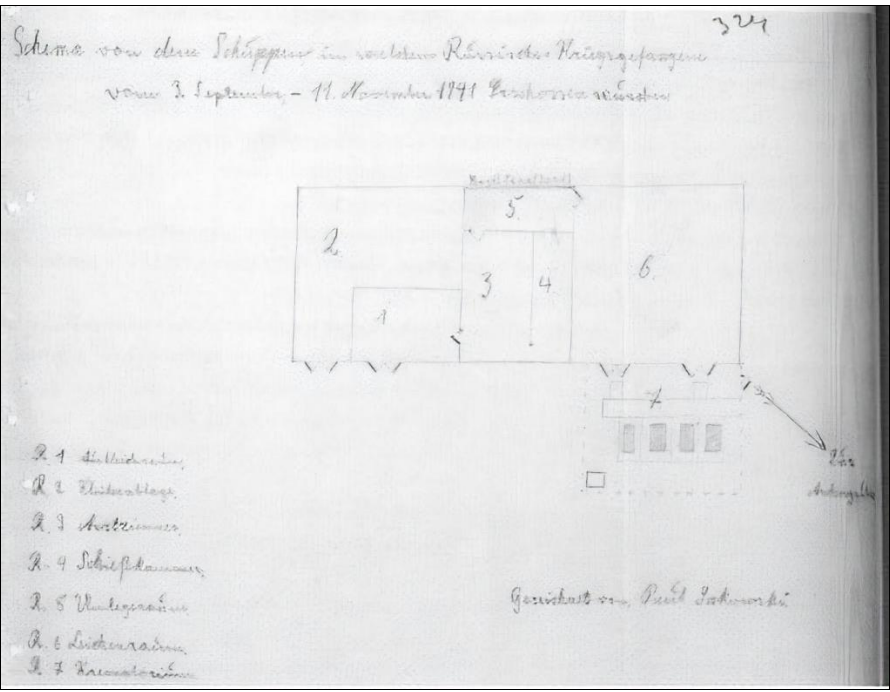 324
Schema von dem Schuppen in welchem Russische Kriegsgefangene
vom 3. September, - 11. November 1941 Erschossen wurden
5
2
3
4
6.
1
7
Zur
R. 1 Auskleideraum,
R. 2 Kleiderablage,
R. 3 Arztzimmer,
R. 4 Schießkammer,
R. 5 Umlegeraum
R. 6 Leichenraum,
R. 7 Krematorium
Gezeichnet von, Paul Sakowski